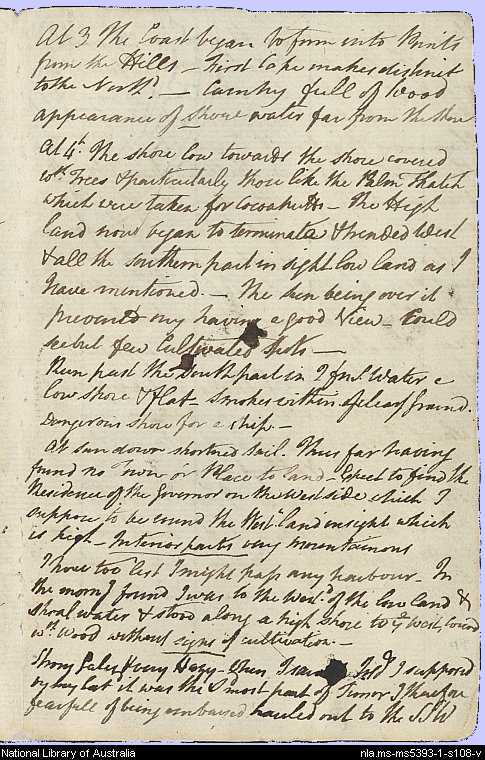 At 3 The Coast began to form into Points
from the Hills – First Cape makes distinct
to the North.d – Country full of Wood
appearance of shore water far from the shore
At 4h. The shore low towards the shore covered
wth. Trees & particularly those like the Palm Thatch
which were taken for cocoa nutts – The High
land now began to terminate & trended West
& all the southern part in sight low land as I
have mentioned. – The sun being over it
prevented my having a good View – Could
see but few Cultivated spots –
Run past the South part in 7 fms. Water a
low shore & flat – smokes within & clear ground.
Dangerous shore for a ship. –
At sun down shortned sail. Thus far having
found no Town or Place to land – Expect to find the
Residence of the Governor on the West side which I
suppose to be round the West. land in sight which
is high – Interior parts very mountainous
I have too lest I might pass any harbour. In
the morng. found I was to the West.d of the low land &
shoal water & stood along a high shore to ye West, covered
wth. Wood without signs of cultivation. –
Strong Gales & very Hazy – When I saw Isd. I supposed
by my Lat it was the S most part of Timor I therefore
fearfull of being embaised hauled out to the SSW
National Library of Australia
nla.ms-ms5393-1-s108-v